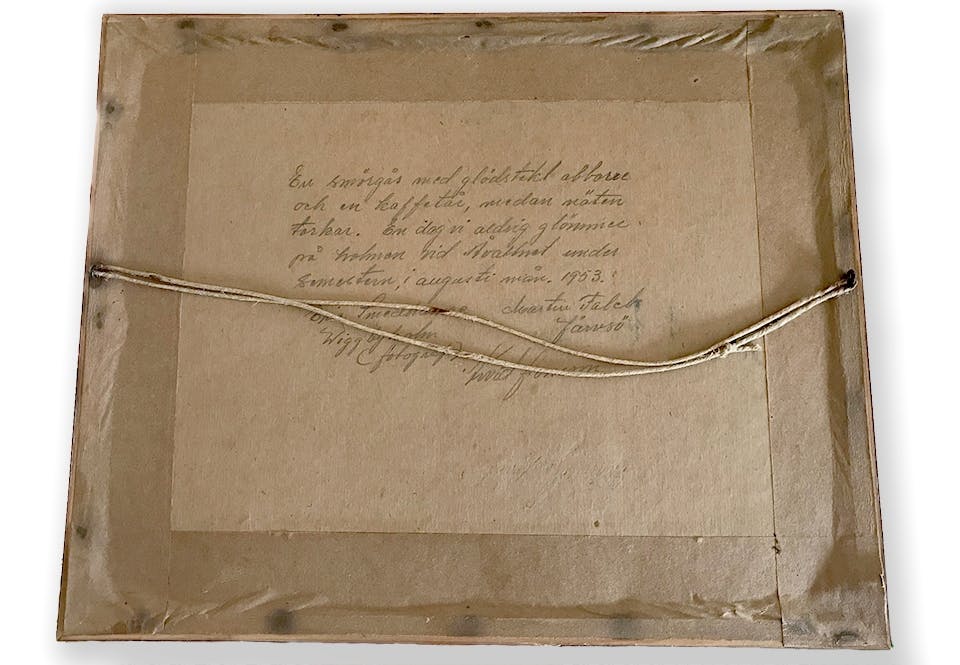 En smörgås med glödstekt abborre
och en kaffetår, medan näten
torkar. En dag vi aldrig glömmer
på holmen vid
semestern, i augusti mån. 1953.
Martin Falck
Järvsö
Wiggbyholm
(fotograf)